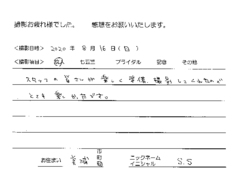 撮影お疲れ様でした。 感想をお願いいたします。
<撮影日時> 2020年 8月16日(日)
<撮影項目> 七五三 ブライダル 記念 その他
スタッフの皆さんが楽しく準備、撮影してくれたので
とても楽しかったです。
お住まい 宮城 ニックネーム イニシャル S.S